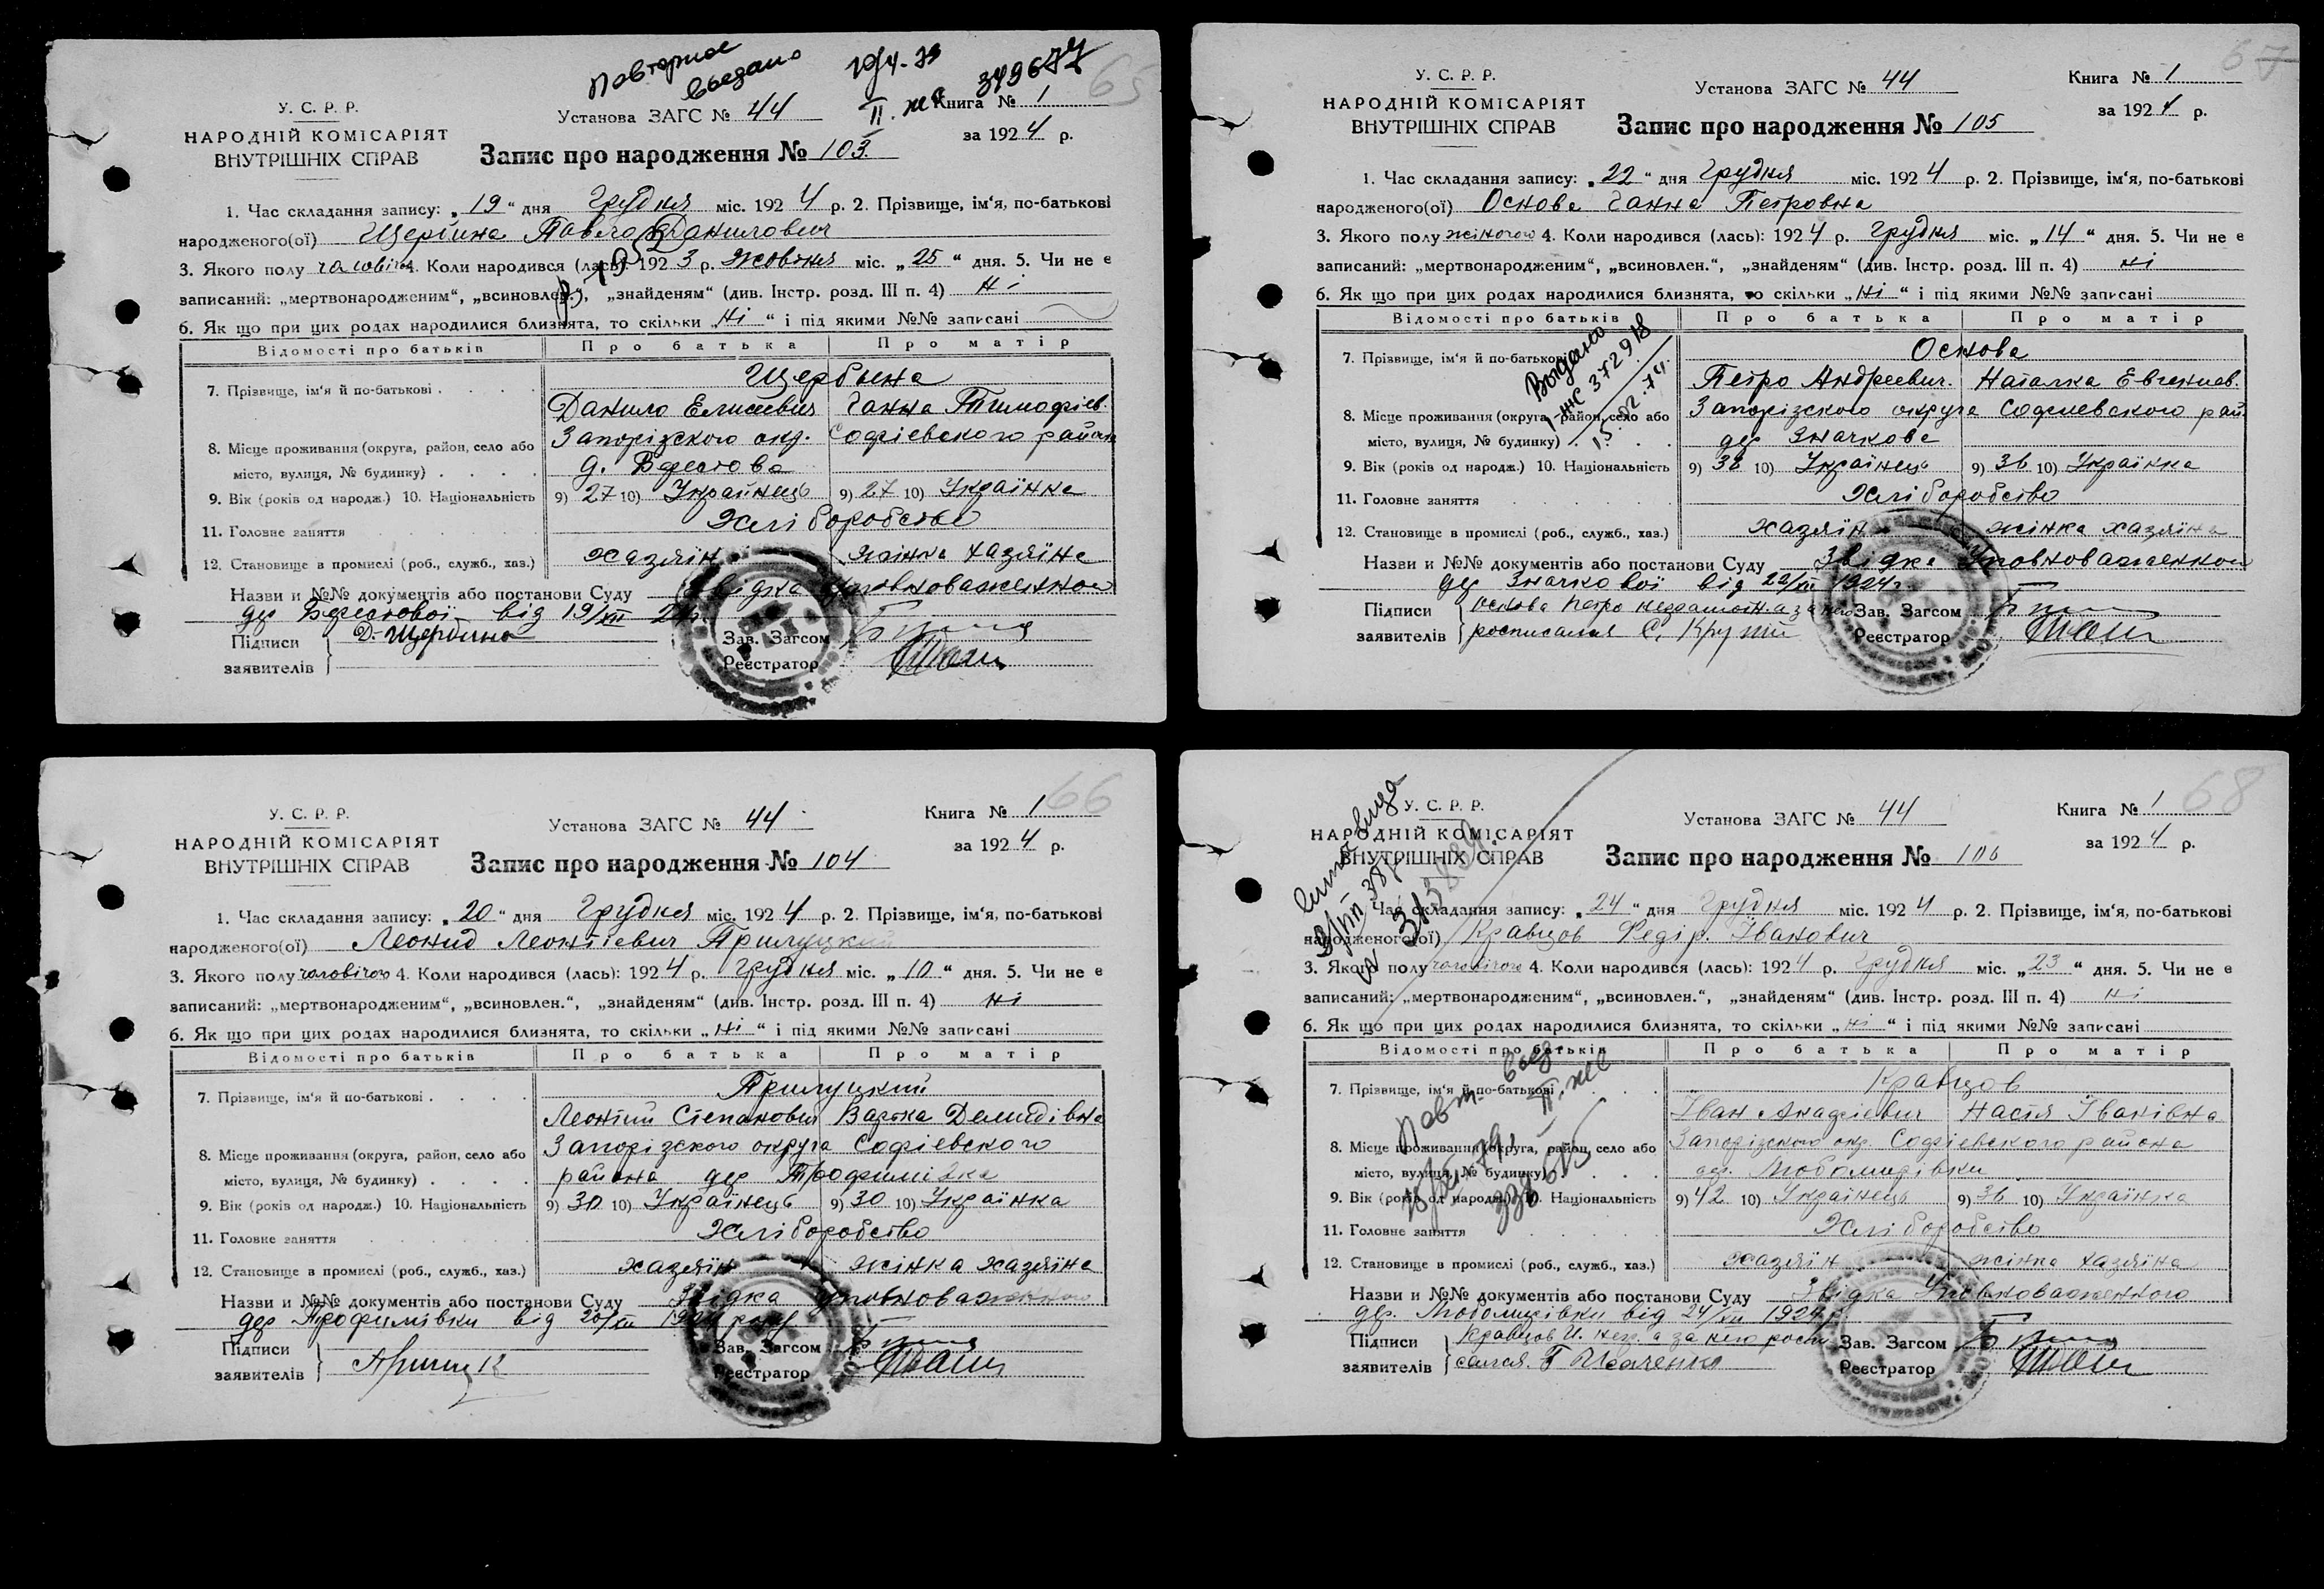 Повторное
выдано
У. С. Р. Р.
НАРОДНІЙ КОМІСАРІЯТ
ВНУТРІШНІХ СПРАВ
Установа ЗАГС № 44
II. жс 349677
Книга № 1
65
за 1924 р.
Запис про народження № 103.
1. Час складання запису: „19“ дня Грудня міс. 1924 р. 2. Прізвище, ім‘я, по-батькові
народженого(ої) Щербина Павело Данилович
3. Якого полу чаловічого 4. Коли народився (лась): 1923 р. Жовтня міс. „25“ дня. 5. Чи не є
записаний: „мертвонародженим“, „всиновлен.“, „знайденям“ (див. Інстр. розд. III п. 4) Ні
6. Як що при цих родах народилися близнята, то скільки „Ні“ і під якими №№ записані
Відомості про батьків Про батька Про матір
7. Прізвище, ім‘я й по-батькові Щербына
Данило Елисеевич Ганна Тимофіев.
8. Місце проживання (округа, район, село або Запорізского окр. Софіевского района
місто, вулиця, № будинку) д. Берестова
9. Вік (років од народж.) 10. Національність 9) 27 10) Українець 9) 27 10) Українка
11. Головне заняття Хліборобство
12. Становище в промислі (роб., служб., хаз.) хазяїн жінка хазяїна
Назви и №№ документів або постанови Суду Звідка Уповноваженной
дер Берестової від 19/XII 24р.
Підписи Д. Щербина Зав. Загсом
заявителів Реєстратор
У. С. Р. Р.
НАРОДНІЙ КОМІСАРІЯТ
ВНУТРІШНІХ СПРАВ
Установа ЗАГС № 44
Книга № 1
67
за 1924 р.
Запис про народження № 105
1. Час складання запису: „22“ дня Грудня міс. 1924 р. 2. Прізвище, ім‘я, по-батькові
народженого(ої) Основа Ганна Петровна
3. Якого полу жіночого 4. Коли народився (лась): 1924 р. Грудня міс. „14“ дня. 5. Чи не є
записаний: „мертвонародженим“, „всиновлен.“, „знайденям“ (див. Інстр. розд. III п. 4) ні
6. Як що при цих родах народилися близнята, то скільки „Ні“ і під якими №№ записані
Відомості про батьків Про батька Про матір
Выдано
I ЖС 372918
15.02.74.
7. Прізвище, ім‘я й по-батькові Основа
Петро Андреевич. Наталка Евгениев.
8. Місце проживання (округа, район, село або Запорізского округа Софиевского рай.
місто, вулиця, № будинку) дер Значкова
9. Вік (років од народж.) 10. Національність 9) 38 10) Українець 9) 36 10) Українка
11. Головне заняття Хліборобство
12. Становище в промислі (роб., служб., хаз.) хазяїн жінка хазяїна
Назви и №№ документів або постанови Суду Звідка Уповноваженной
дер Значкової від 22/XII 1924 г.
Підписи Основа Петро неграмотн. а за него Зав. Загсом
заявителів росписался С. Крутий Реєстратор
У. С. Р. Р.
НАРОДНІЙ КОМІСАРІЯТ
ВНУТРІШНІХ СПРАВ
Установа ЗАГС № 44
Книга № 1
66
за 1924 р.
Запис про народження № 104
1. Час складання запису: „20“ дня Грудня міс. 1924 р. 2. Прізвище, ім‘я, по-батькові
народженого(ої) Леонид Леонтіевич Прилуцкий
3. Якого полу чоловічого 4. Коли народився (лась): 1924 р. Грудня міс. „10“ дня. 5. Чи не є
записаний: „мертвонародженим“, „всиновлен.“, „знайденям“ (див. Інстр. розд. III п. 4) ні
6. Як що при цих родах народилися близнята, то скільки „Ні“ і під якими №№ записані
Відомості про батьків Про батька Про матір
7. Прізвище, ім‘я й по-батькові Прилуцкий
Леонтий Степанович Варка Демидівна
8. Місце проживання (округа, район, село або Запорізского округа Софіевского
місто, вулиця, № будинку) района дер Трофимівка
9. Вік (років од народж.) 10. Національність 9) 30 10) Українець 9) 30 10) Українка
11. Головне заняття Хліборобство
12. Становище в промислі (роб., служб., хаз.) хазяїн жінка хазяїна
Назви и №№ документів або постанови Суду Звідка уповноваженного
дер Трофимівки від 20/XII 1924 року
Підписи Зав. Загсом
заявителів Реєстратор
У. С. Р. Р.
НАРОДНІЙ КОМІСАРІЯТ
ВНУТРІШНІХ СПРАВ
Установа ЗАГС № 44
Книга № 1
68
за 1924 р.
Запис про народження № 106
1. Час складання запису: „24“ дня Грудня міс. 1924 р. 2. Прізвище, ім‘я, по-батькові
народженого(ої) Кравцов Федір. Іванович
3. Якого полу чоловічого 4. Коли народився (лась): 1924 р. Грудня міс. „23“ дня. 5. Чи не є
записаний: „мертвонародженим“, „всиновлен.“, „знайденям“ (див. Інстр. розд. III п. 4) ні
6. Як що при цих родах народилися близнята, то скільки „ні“ і під якими №№ записані
Відомості про батьків Про батька Про матір
7. Прізвище, ім‘я й по-батькові Кравцов
Іван Анафіевич Настя Іванівна
8. Місце проживання (округа, район, село або Запорізского окр. Софіевского района
місто, вулиця, № будинку) дер. Любомирівки
9. Вік (років од народж.) 10. Національність 9) 42 10) Українець 9) 36 10) Українка
11. Головне заняття Хліборобство
12. Становище в промислі (роб., служб., хаз.) хазяїн жінка хазяїна
Назви и №№ документів або постанови Суду Звідка Уповноваженного
дер. Любомирівки від 24/XII 1924 р.
Підписи Кравцов И. негр. а за него роспи Зав. Загсом
заявителів сался. Реєстратор